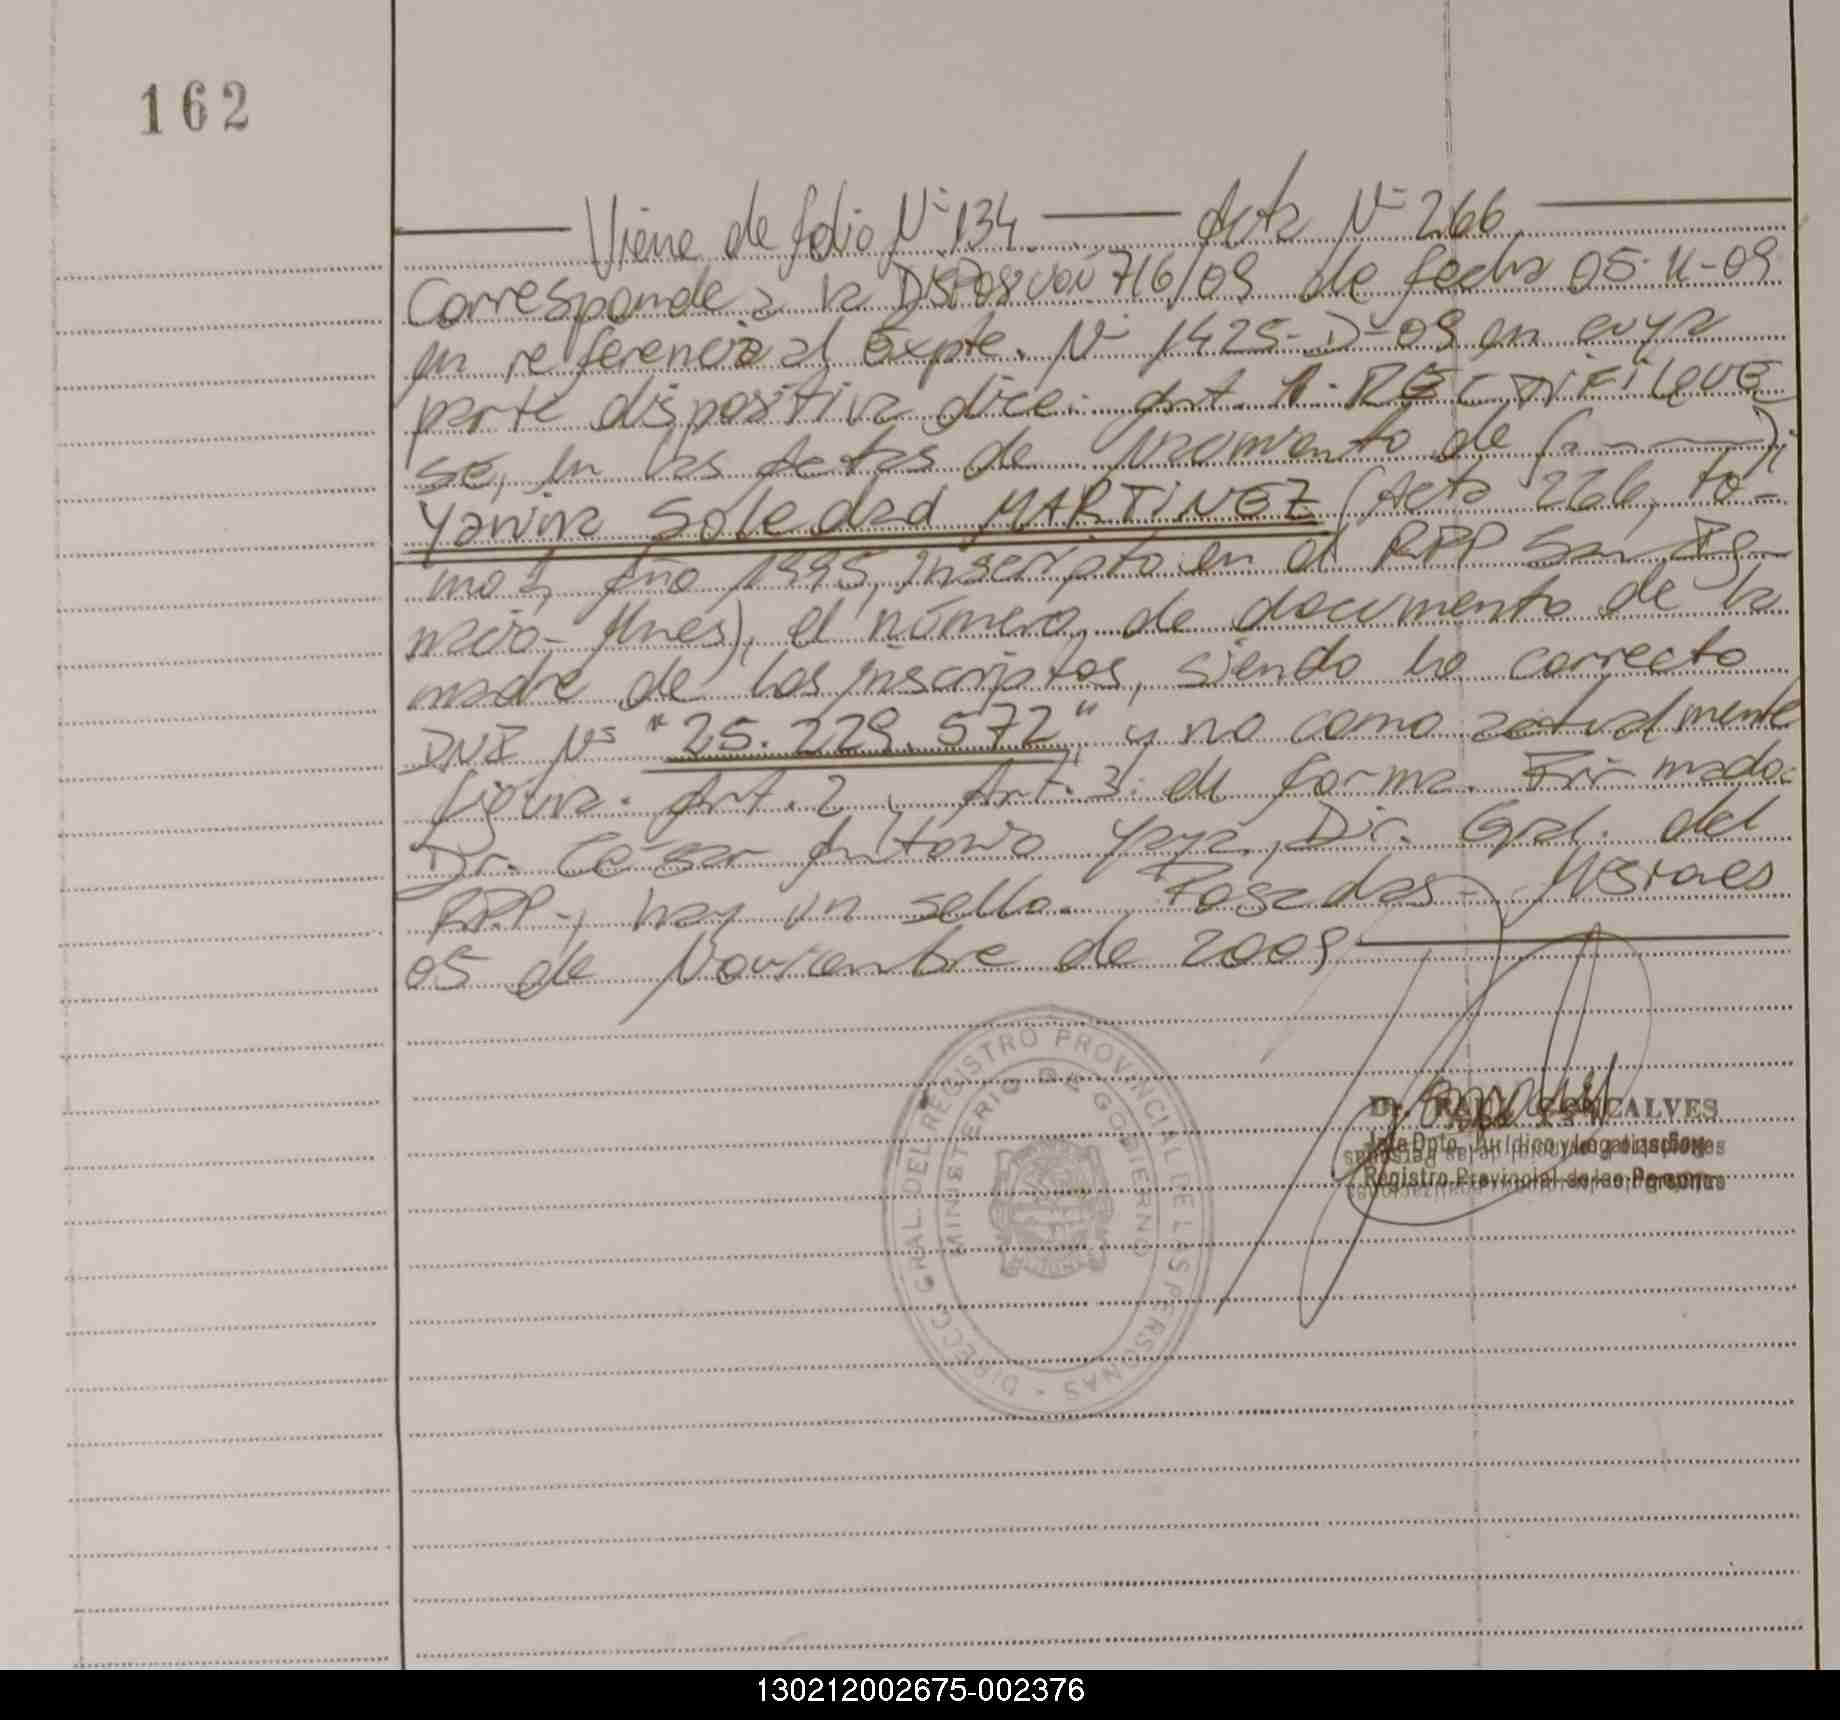 162
Viene de folio Nº 134 Acta Nº 266
Corresponde a la DISPOSICION 716/09 de fecha 05-11-09
en referencia al Expte. Nº 1425-D-09 en cuya
parte dispositiva dice: Art. 1: RECTIFIQUE
se, en las Actas de nacimiento de (
Yanina Soledad MARTINEZ (Acta 266, to-
mo I, Año 1995, inscripto en el RPP San Ig-
nacio- Mnes), el número de documento de la
madre de los inscriptos, siendo lo correcto
DNI Nº "25.229.572" y no como actualmente
figura. Art. 2, Art. 3: de forma. Firmado:
Dr. César Antonio Yaya, Dir. Gral. del
RPP-, hay un sello. Posadas- Misiones
05 de Noviembre de 2009
DIRECC. GRAL. DEL REGISTRO PROVINCIAL DE LAS PERSONAS -
MINISTERIO DE GOBIERNO
Dr. RAUL GONCALVES
Jefe Dpto. Jurídico y Legalizaciones
Registro Provincial de las Personas
130212002675-002376